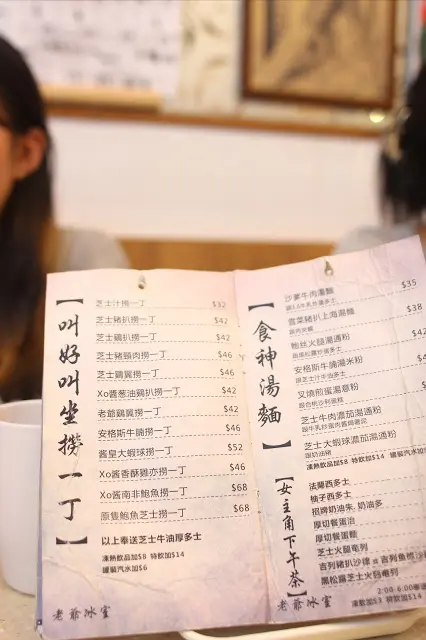 【叫好叫坐撈一丁】
芝士汁撈一丁 $32
芝士豬扒撈一丁 $42
芝士鷄扒撈一丁 $42
芝士豬頸肉撈一丁 $46
芝士鷄翼撈一丁 $46
Xo醬葱油鷄扒撈一丁 $42
老爺鷄翼撈一丁 $42
安格斯牛腩撈一丁 $46
醬皇大蝦球撈一丁 $52
Xo醬香酥雞亦撈一丁 $46
Xo醬南非鮑魚撈一丁 $68
原隻鮑魚芝士撈一丁 $68
以上奉送芝士牛油厚多士
凍熱飲品加$8 特飲加$14
罐裝汽水加$6
老爺冰室
【食神湯麵】
沙爹牛肉湯麵 $35
雪菜豬扒上海湯麵 $38
鮑絲火腿湯通粉 $42
安格斯牛腩湯米粉
叉燒煎蛋湯意粉
芝士牛肉濃茄湯通粉
芝士大蝦球濃茄湯通粉
凍熱飲品加$8 特飲加$14
【女主角下午茶】
法蘭西多士
柚子西多士
招牌奶油朱. 奶油多
厚切餐蛋治
厚切餐蛋麵
芝士火腿奄列
吉列豬扒沙律
黑松露芝士火腿奄列
2:00-6:00
凍飲加$3 特飲加$14
老爺冰室